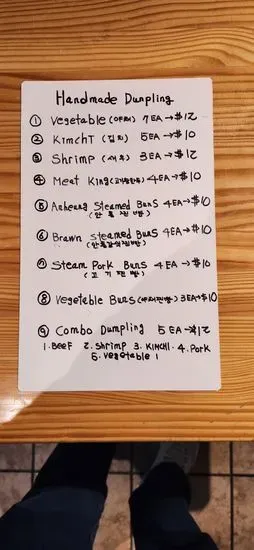 Handmade Dumpling
① Vegetable (야채) 7EA→$12
② KimchI (김치) 5EA→$10
③ Shrimp (새우) 3EA→$12
④ Meat King 4EA→$10
⑤ Anheung Steamed Buns 4EA→$10
(안흥찐빵)
⑥ Brawn Steamed Buns 4EA→$10
⑦ Steam Pork Buns 4EA→$10
(고기찐빵)
⑧ Vegetable Buns (야채찐빵) 3EA→$10
⑨ Combo Dumpling 5EA→$12
1. Beef 2. Shrimp 3. KIMCHI 4. Pork
5. Vegetable 1